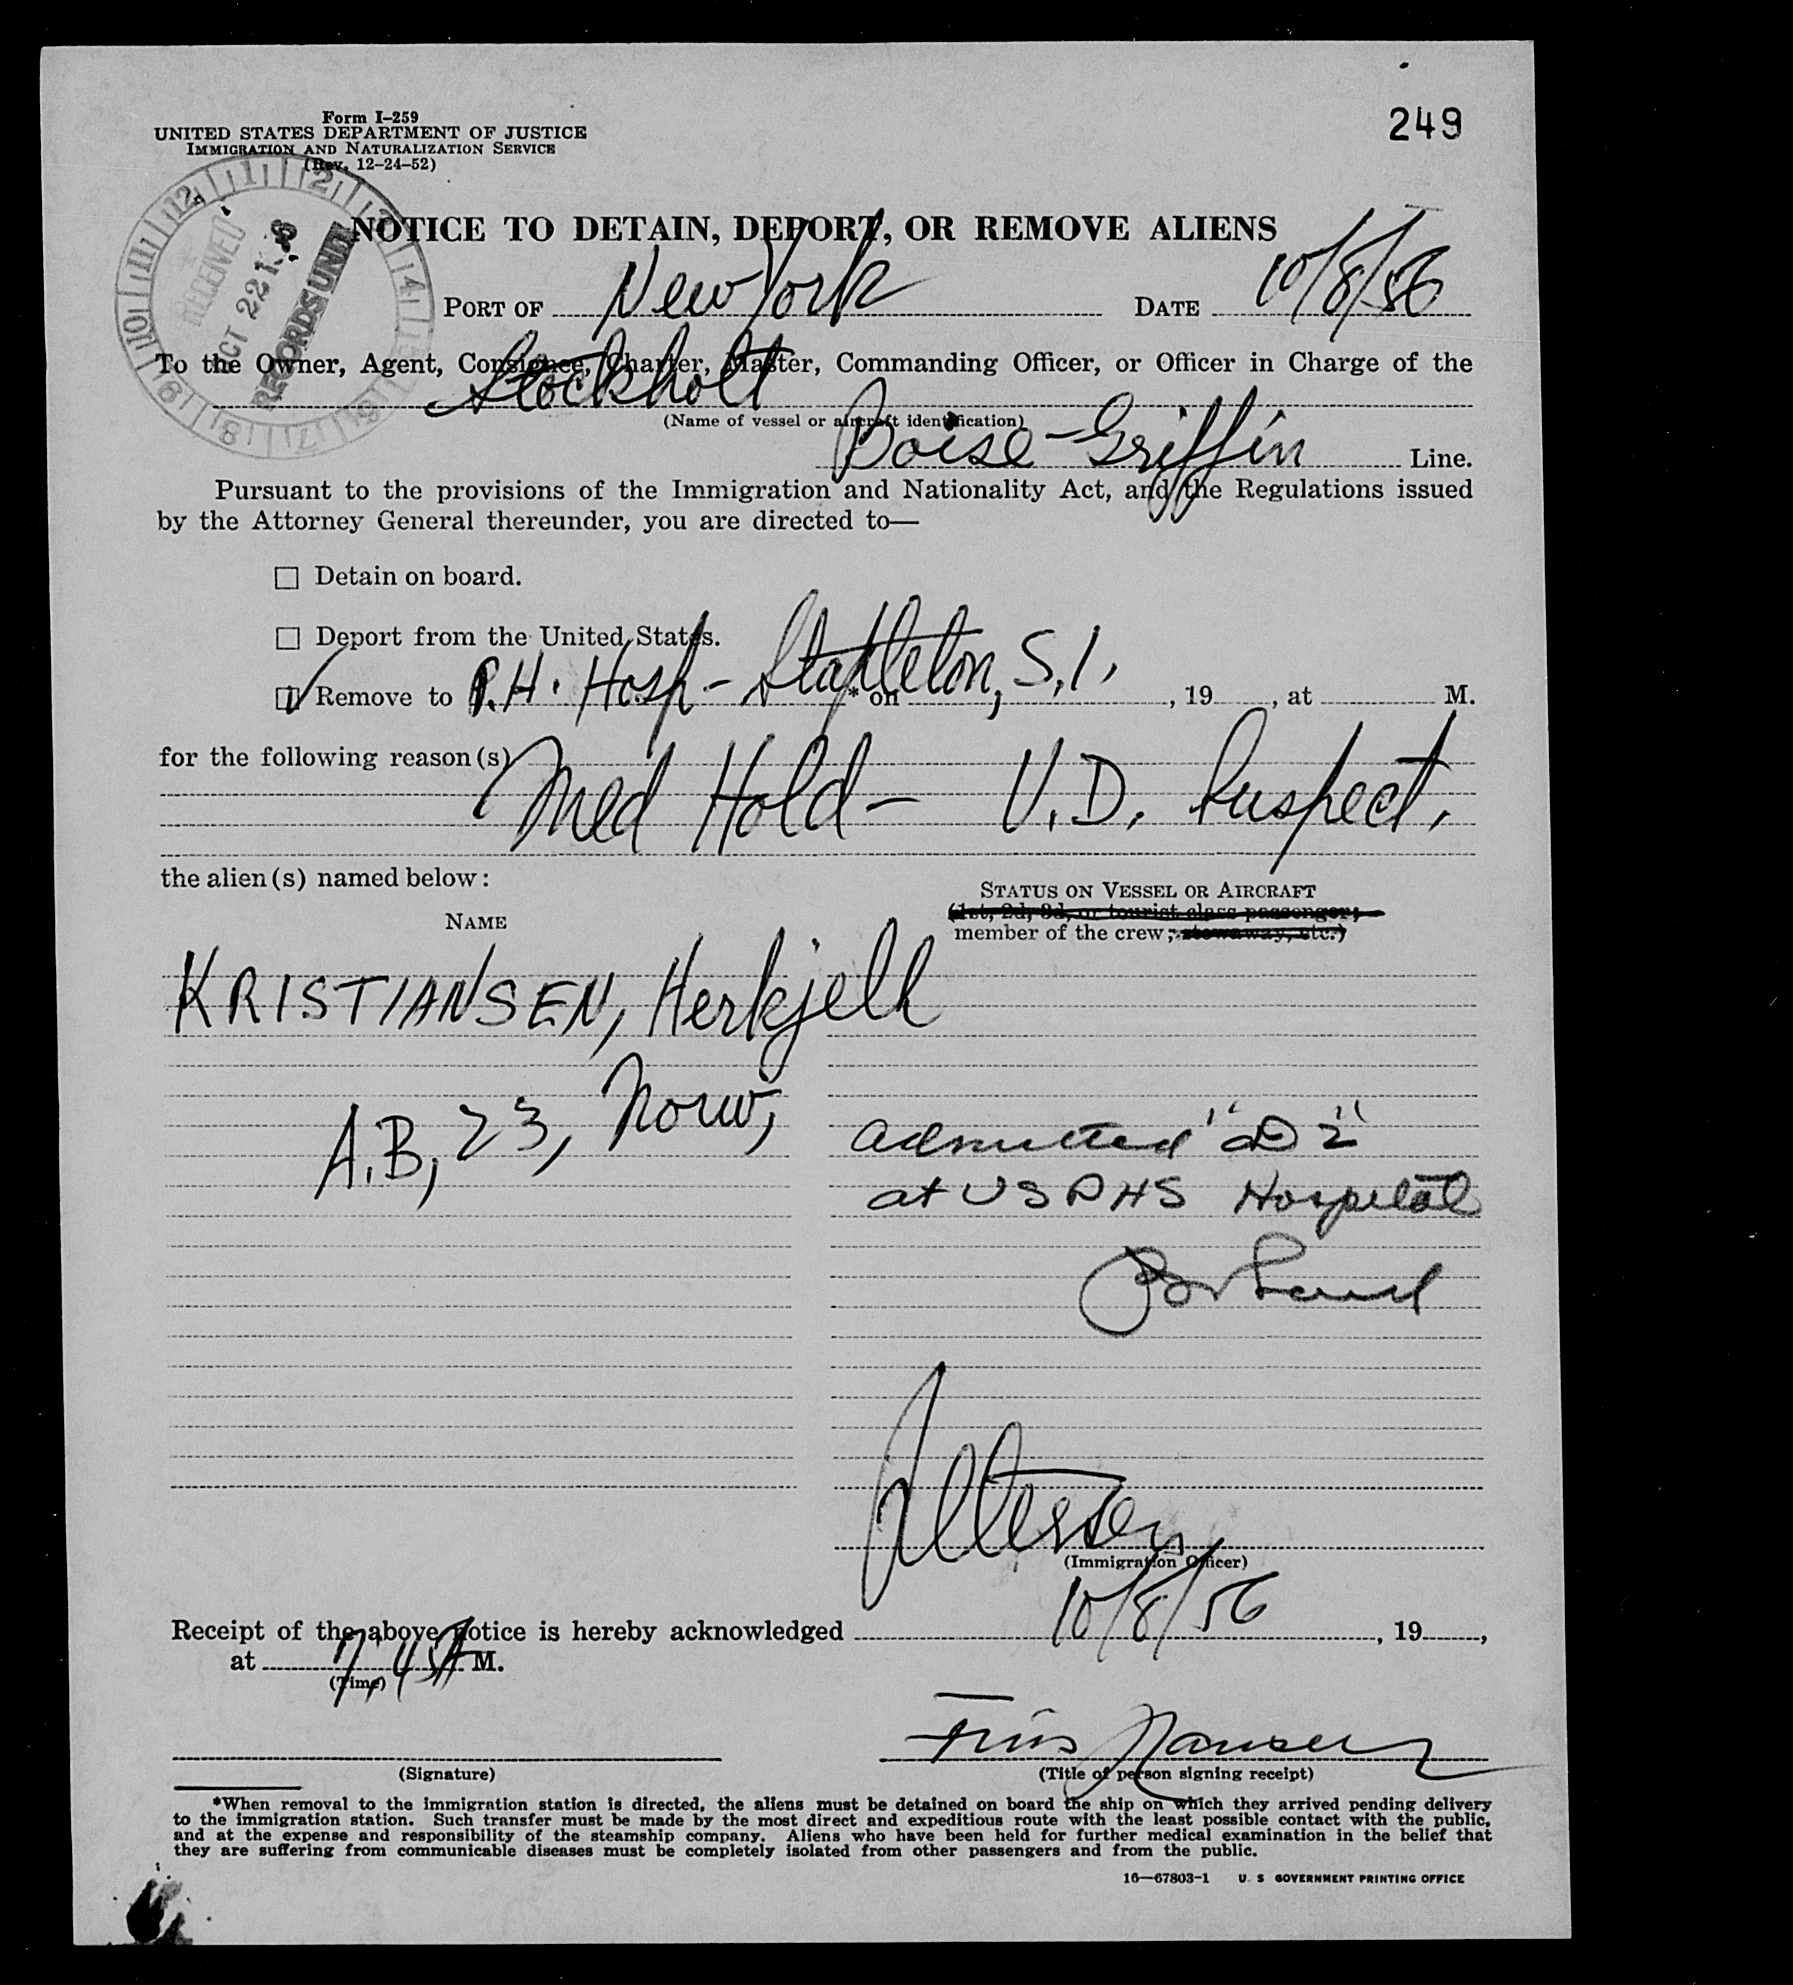 249
Form I-259
UNITED STATES DEPARTMENT OF JUSTICE
IMMIGRATION AND NATURALIZATION SERVICE
(Rev. 12-24-52)
12 1 2 4 7 8 9 10 11
RECEIVED
OCT 22
RECORDS UNIT
NOTICE TO DETAIN, DEPORT, OR REMOVE ALIENS
PORT OF New York DATE 10/8/56
To the Owner, Agent, Consignee, Charter, Master, Commanding Officer, or Officer in Charge of the
Stockholt
(Name of vessel or aircraft identification)
Boise-Griffin Line.
Pursuant to the provisions of the Immigration and Nationality Act, and the Regulations issued
by the Attorney General thereunder, you are directed to—
☐ Detain on board.
☐ Deport from the United States.
☑ Remove to P.H. Hosp - Stapleton, S.I. * on , 19 , at M.
for the following reason(s)
Med Hold - V.D. Suspect.
the alien(s) named below:
STATUS ON VESSEL OR AIRCRAFT
(1st, 2d, 3d, or tourist class passenger;
NAME
member of the crew; stowaway, etc.)
KRISTIANSEN, Herkjell
A.B, 23, Norw,
Admitted "D2"
at USPHS Hospital
(Immigration Officer)
10/8/56
Receipt of the above notice is hereby acknowledged , 19 ,
at 7,45A M.
(Time)
Hansen
(Signature)
(Title of person signing receipt)
*When removal to the immigration station is directed, the aliens must be detained on board the ship on which they arrived pending delivery
to the immigration station. Such transfer must be made by the most direct and expeditious route with the least possible contact with the public,
and at the expense and responsibility of the steamship company. Aliens who have been held for further medical examination in the belief that
they are suffering from communicable diseases must be completely isolated from other passengers and from the public.
16—67803-1 U. S GOVERNMENT PRINTING OFFICE